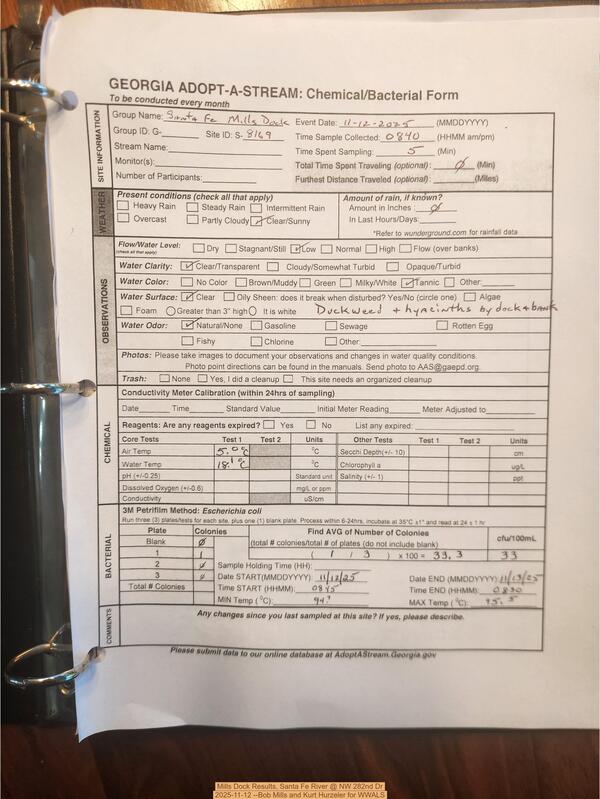 GEORGIA ADOPT-A-STREAM: Chemical/Bacterial Form
To be conducted every month
SITE INFORMATION
Group Name: Santa Fe Mills Dock Event Date: 11-12-2025 (MMDDYYYY)
Group ID: G- Site ID: S-8169 Time Sample Collected: 0840 (HHMM am/pm)
Stream Name: Time Spent Sampling: 5 (Min)
Monitor(s): Total Time Spent Traveling (optional): Ø (Min)
Number of Participants: Furthest Distance Traveled (optional): (Miles)
WEATHER
Present conditions (check all that apply) Amount of rain, if known?
Heavy Rain Steady Rain Intermittent Rain Amount in Inches: Ø
Overcast Partly Cloudy ✓ Clear/Sunny In Last Hours/Days:
*Refer to wunderground.com for rainfall data
OBSERVATIONS
Flow/Water Level: Dry Stagnant/Still ✓ Low Normal High Flow (over banks)
(check all that apply)
Water Clarity: ✓ Clear/Transparent Cloudy/Somewhat Turbid Opaque/Turbid
Water Color: No Color Brown/Muddy Green Milky/White ✓ Tannic Other:
Water Surface: ✓ Clear Oily Sheen: does it break when disturbed? Yes/No (circle one) Algae
Foam Greater than 3" high It is white Duckweed + hyacinths by dock + bank
Water Odor: ✓ Natural/None Gasoline Sewage Rotten Egg
Fishy Chlorine Other:
Photos: Please take images to document your observations and changes in water quality conditions.
Photo point directions can be found in the manuals. Send photo to AAS@gaepd.org.
Trash: None Yes, I did a cleanup This site needs an organized cleanup
CHEMICAL
Conductivity Meter Calibration (within 24hrs of sampling)
Date Time Standard Value Initial Meter Reading Meter Adjusted to
Reagents: Are any reagents expired? Yes No List any expired:
Core Tests Test 1 Test 2 Units Other Tests Test 1 Test 2 Units
Air Temp 5.0°C °C Secchi Depth(+/- 10) cm
Water Temp 18.1°C °C Chlorophyll a ug/L
pH (+/-0.25) Standard unit Salinity (+/- 1) ppt
Dissolved Oxygen (+/-0.6) mg/L or ppm
Conductivity uS/cm
BACTERIAL
3M Petrifilm Method: Escherichia coli
Run three (3) plates/tests for each site, plus one (1) blank plate. Process within 6-24hrs, incubate at 35°C ±1° and read at 24 ± 1 hr
Plate Colonies Find AVG of Number of Colonies cfu/100mL
Blank Ø (total # colonies/total # of plates (do not include blank)
1 1 ( 1 / 3 ) x 100 = 33.3 33
2 Ø Sample Holding Time (HH):
3 Ø Date START(MMDDYYYY): 11/12/25 Date END (MMDDYYYY): 11/13/25
Total # Colonies Time START (HHMM): 0845 Time END (HHMM): 0830
MIN Temp (°C): MAX Temp (°C): 95.5
COMMENTS
Any changes since you last sampled at this site? If yes, please describe.
Please submit data to our online database at AdoptAStream.Georgia.gov
Mills Dock Results, Santa Fe River @ NW 282nd Dr
2025-11-12 --Bob Mills and Kurt Hurzeler for WWALS